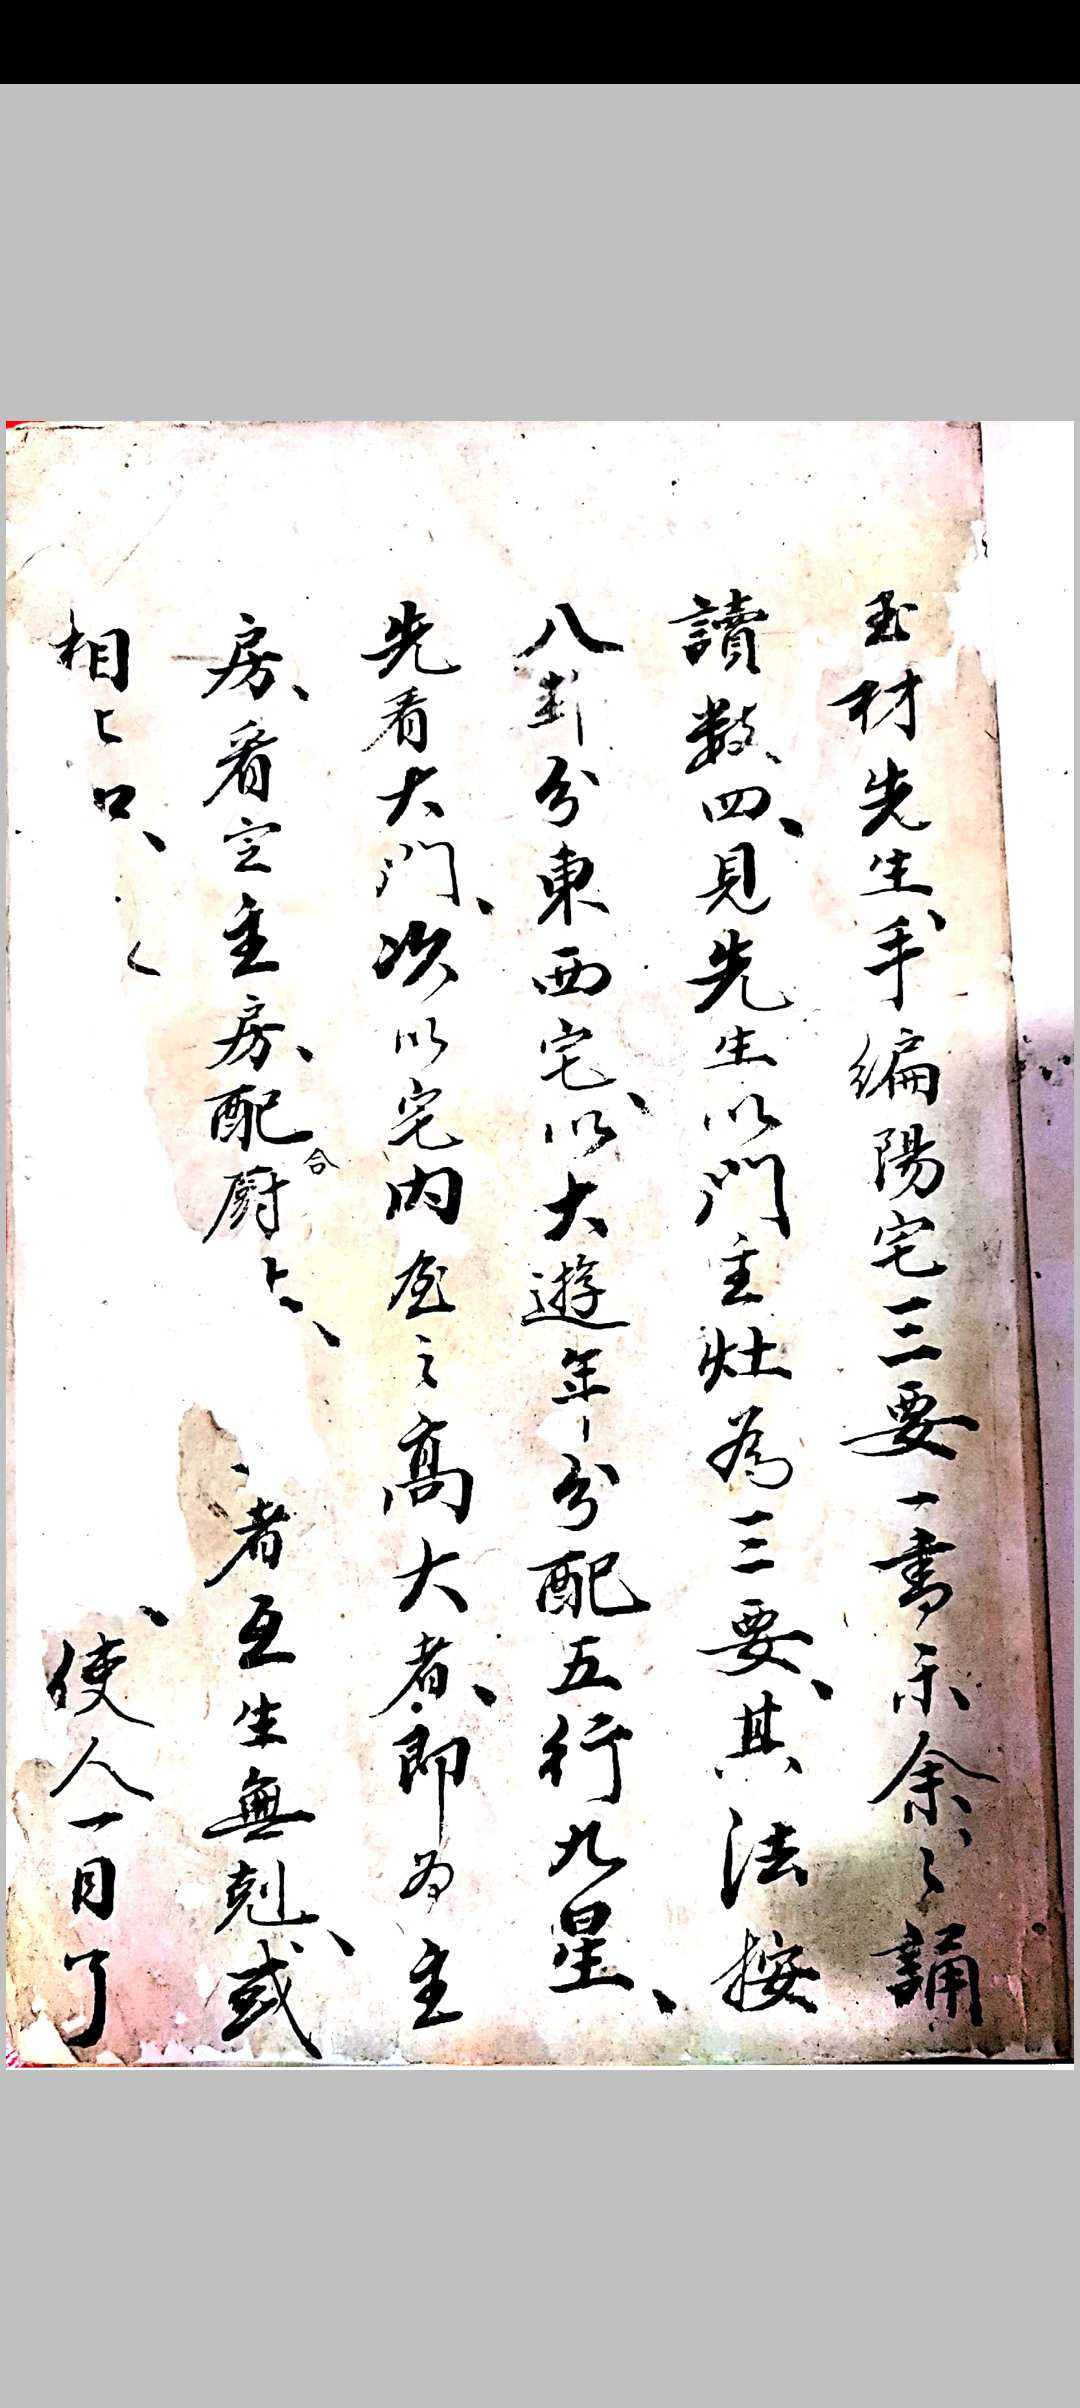 玉材先生手編陽宅三要一書示余、〻誦
讀數四、見先生以門主灶爲三要、其法按
八卦分東西宅、以大遊年分配五行九星、
先看大門、次以宅內屋之高大者、即为主
房、看定主房、配合厨
者互生無剋、或
相
使人一目了